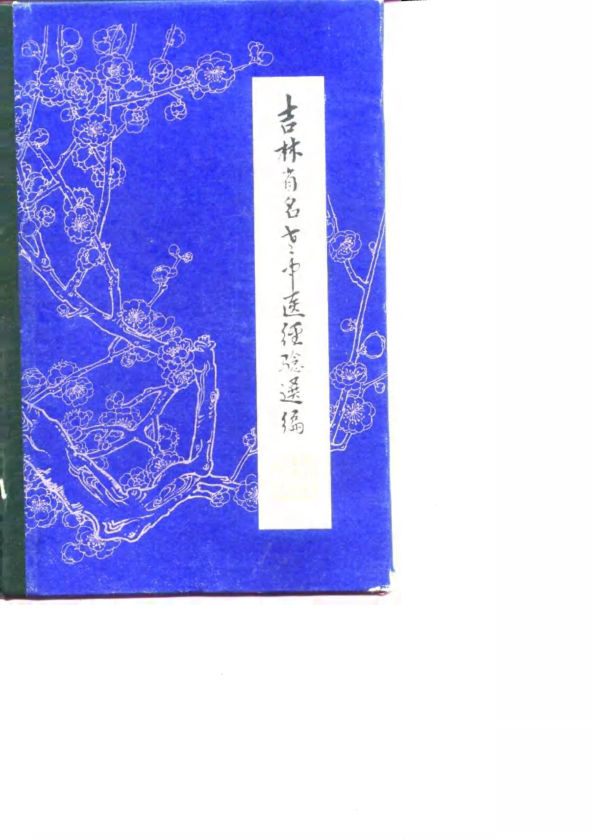 吉林省名老中医经验选编